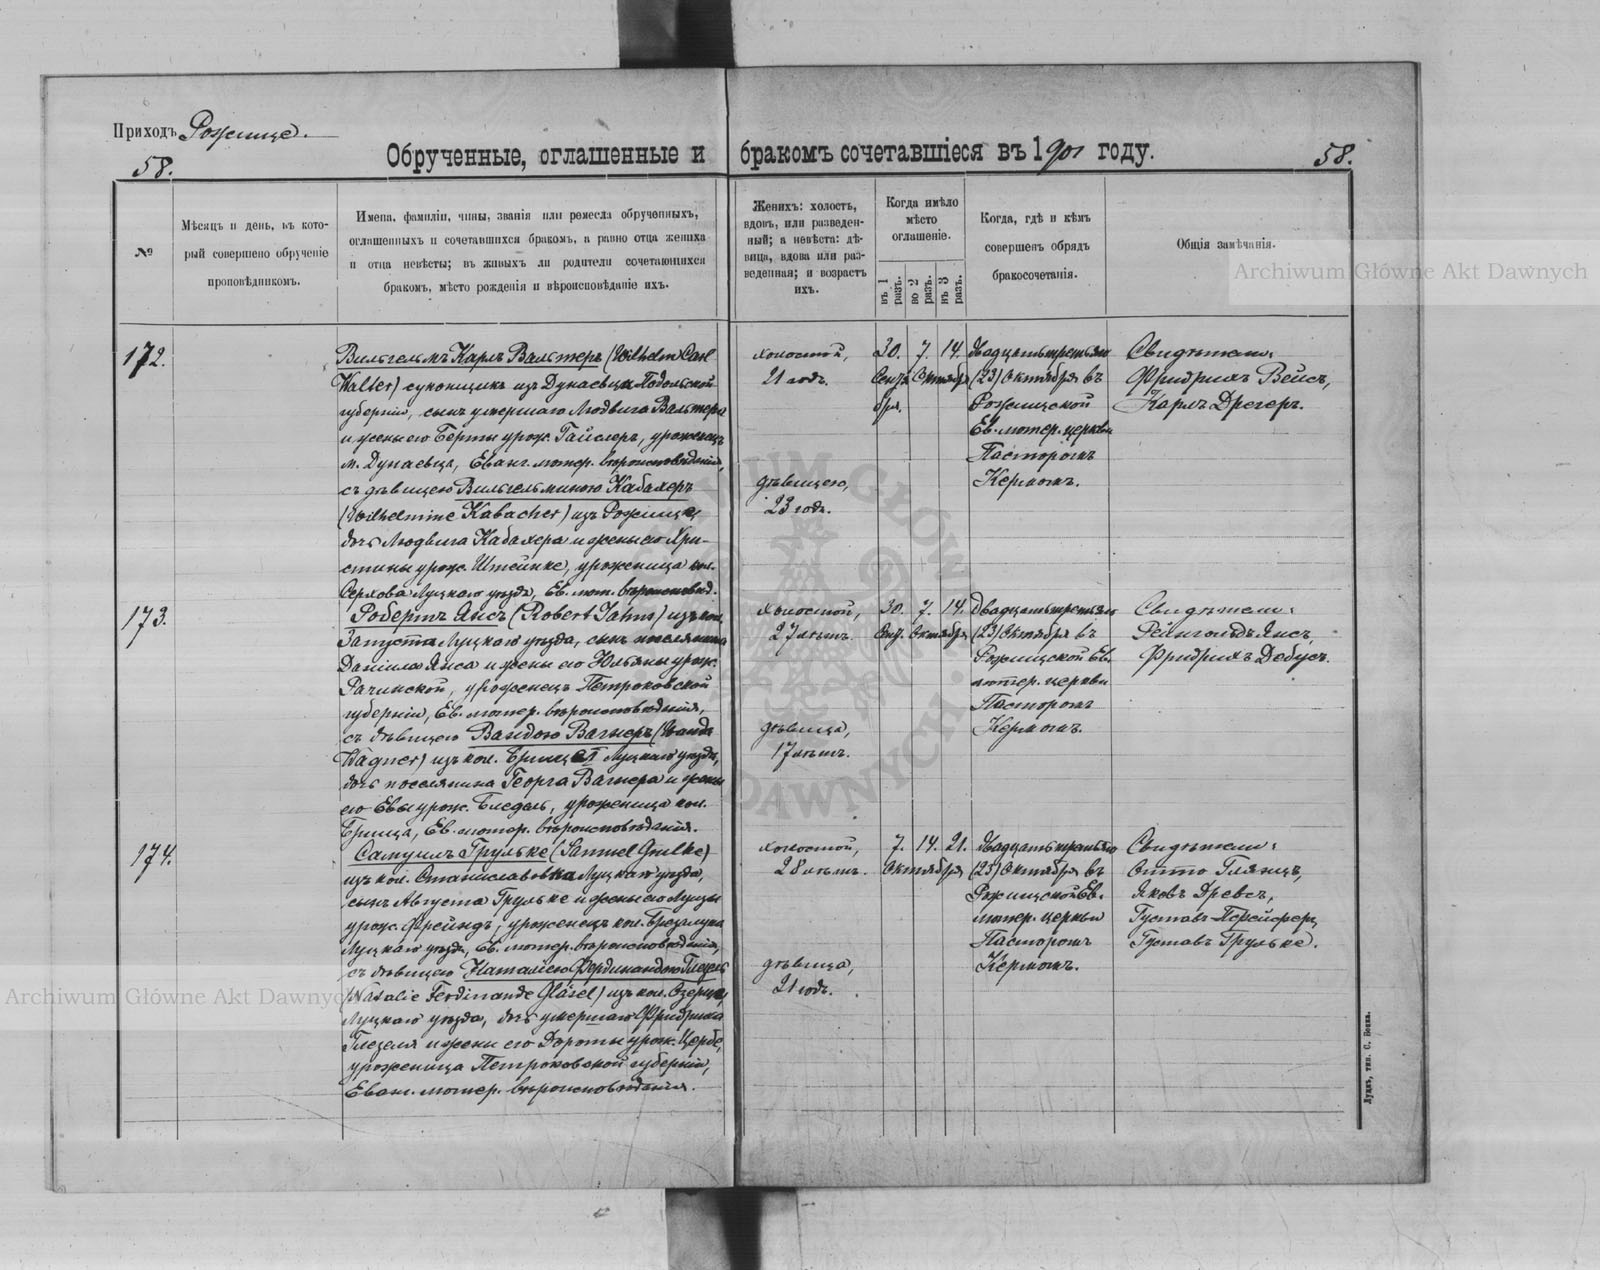 Приходъ Рожище.
58.
Обрученные, оглашенные и бракомъ сочетавшіеся въ 1901 году.
58.
№
Мѣсяцъ и день, въ кото-
рый совершено обрученіе
проповѣдникомъ.
Имена, фамиліи, чины, званія или ремесла обрученныхъ,
оглашенныхъ и сочетавшихся бракомъ, а равно отца жениха
и отца невѣсты; въ живыхъ ли родители сочетающихся
бракомъ, мѣсто рожденія и вѣроисповѣданіе ихъ.
Женихъ: холостъ,
вдовъ, или разведен-
ный; а невѣста: дѣ-
вица, вдова или раз-
веденная; и возрастъ
ихъ.
Когда имѣло
мѣсто
оглашеніе.
въ 1 разъ.
во 2 разъ.
въ 3 разъ.
Когда, гдѣ и кѣмъ
совершенъ обрядъ
бракосочетанія.
Общія замѣчанія.
172.
Вильгельмъ Карлъ Вальтеръ (Wilhelm Carl
Walter) суконщикъ изъ Дунаевца Подольской
губерніи, сынъ умершаго Людвига Вальтера
и жены его Берты урож. Гайслеръ, уроженецъ
м. Дунаевца, Еванг. лютер. вѣроисповѣданія,
съ дѣвицею Вильгельминою Кабахеръ
(Wilhelmine Kabacher) изъ Рожища,
дочь Людвига Кабахера и жены его Хри-
стины урож. Штейнке, уроженица кол.
Серхова Луцкаго уѣзда, Ев. лют. вѣроисповѣд.
холостой,
21 годъ.
дѣвицею,
23 годъ.
30. 7. 14.
Сентя Октября
бря.
Двадцать третьяго
(23) Октября въ
Рожищской
Ев. лютер. церкви
Пасторомъ
Кермомъ.
Свидѣтели:
Фридрихъ Вейсъ,
Карлъ Дрегеръ.
173.
Робертъ Янсъ (Robert Jahns) изъ кол.
Запуста Луцкаго уѣзда, сынъ поселянина
Даніила Янса и жены его Юльяны урож.
Рачинской, уроженецъ Петроковской
губерніи, Ев. лютер. вѣроисповѣданія,
съ дѣвицею Вандою Вагнеръ (Wanda
Wagner) изъ кол. Брищъ II Луцкаго уѣзда,
дочь поселянина Георга Вагнера и жены
его Евы урож. Бледель, уроженица кол.
Брища, Ев. лютер. вѣроисповѣданія.
холостой,
27 лѣтъ.
дѣвица,
17 лѣтъ.
30. 7. 14.
Сент. Октября
Двадцать третьяго
(23) Октября въ
Рожищской Ев.
лютер. церкви
Пасторомъ
Кермомъ.
Свидѣтели:
Рейнгольдъ Янсъ,
Фридрихъ Добусъ.
174.
Самуилъ Грульке (Samuel Grulke)
изъ кол. Станиславовка Луцкаго уѣзда,
сынъ Августа Грульке и жены его Луизы
урож. Фрейндъ, уроженецъ кол. Брезалука
Луцкаго уѣзда, Ев. лютер. вѣроисповѣданія,
съ дѣвицею Наталіею Фердинандою Глезель
(Natalie Ferdinande Gläsel) изъ кол. Озерце,
Луцкаго уѣзда, дочь умершаго Фридриха
Глезеля и жены его Дороты урож. Цербе,
уроженица Петроковской губерніи,
Еванг. лютер. вѣроисповѣданія.
холостой,
28 лѣтъ.
дѣвица,
21 годъ.
7. 14. 21.
Октября
Двадцать третьяго
(23) Октября въ
Рожищской Ев.
лютер. церкви
Пасторомъ
Кермомъ.
Свидѣтели:
Отто Глянцъ,
Яковъ Древсъ,
Густавъ Пфейферъ,
Густавъ Грульке.
Луцкъ, тип. С. Бонка.
Archiwum Główne Akt Dawnych
Archiwum Główne Akt Dawnych